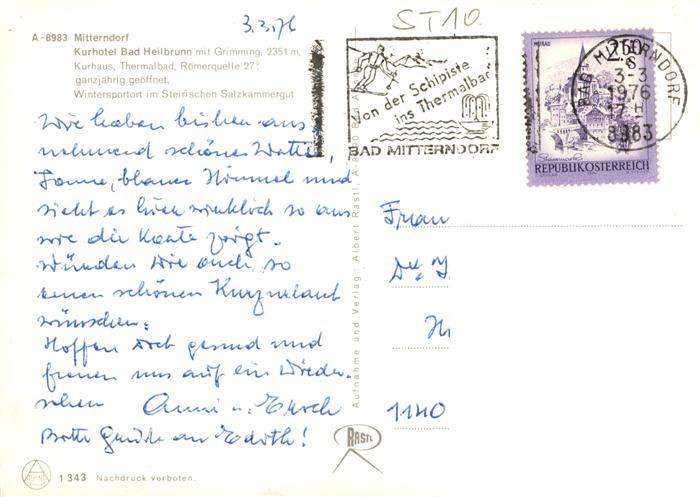 3.3.76
ST10.
A-8983 Mitterndorf
Kurhotel Bad Heilbrunn mit Grimming, 2351 m,
Kurhaus, Thermalbad, Römerquelle 27°,
ganzjährig geöffnet,
Wintersportort im Steirischen Salzkammergut
Von der Schipiste
ins Thermalbad
BAD MITTERNDORF
MURAU
2.50
Steiermark
REPUBLIK ÖSTERREICH
BAD MITTERNDORF
3-3
1976
8983
Wir haben bisher aus-
nehmend schönes Wetter,
Sonne, blauer Himmel und
sieht es hier wirklich so aus
wie die Karte zeigt.
Würden Dir auch so
einen schönen Kurzurlaub
wünschen.
Hoffen Dich gesund und
freuen uns auf ein Wieder-
sehen Anni u.
Bitte Grüße an Edith!
Frau
1140
Aufnahme und Verlag: Albert Rastl, A-8990 Bad A
RASTL
1 343 Nachdruck verboten.